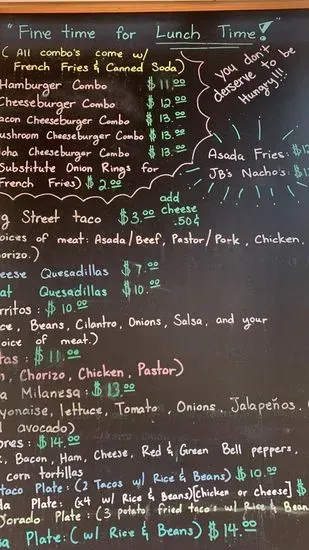 "Fine time for Lunch Time!"
( All combo's come w/
French Fries & Canned Soda)
you don't
deserve to be
Hungry!!!
Hamburger Combo $11.00
Cheeseburger Combo $12.00
acon Cheeseburger Combo $13.00
ushroom Cheeseburger Combo $13.00
loha Cheeseburger Combo $13.00
Substitute Onion Rings for
French Fries) $2.00
Asada Fries: $1
JB's Nacho's: $1
g Street taco $3.00 add cheese .50¢
oices of meat: Asada/Beef, Pastor/Pork, Chicken,
orizo.)
eese Quesadillas $7.00
at Quesadillas $10.00
rritos: $10.00
ce, Beans, Cilantro, Onions, Salsa, and your
oice of meat.)
tas: $11.00
, Chorizo, Chicken, Pastor)
a Milanesa: $13.00
yonaise, lettuce, Tomato, Onions, Jalapeños,
avocado)
ores: $14.00
, Bacon, Ham, Cheese, Red & Green Bell peppers,
corn tortillas
taco Plate: (2 Tacos w/ Rice & Beans) $10.00
da Plate: (x4 w/ Rice & Beans)[chicken or cheese] $
Dorado Plate: (3 potato fried taco's w/ Rice & Bean
sa Plate: (w/ Rice & Beans) $14.00